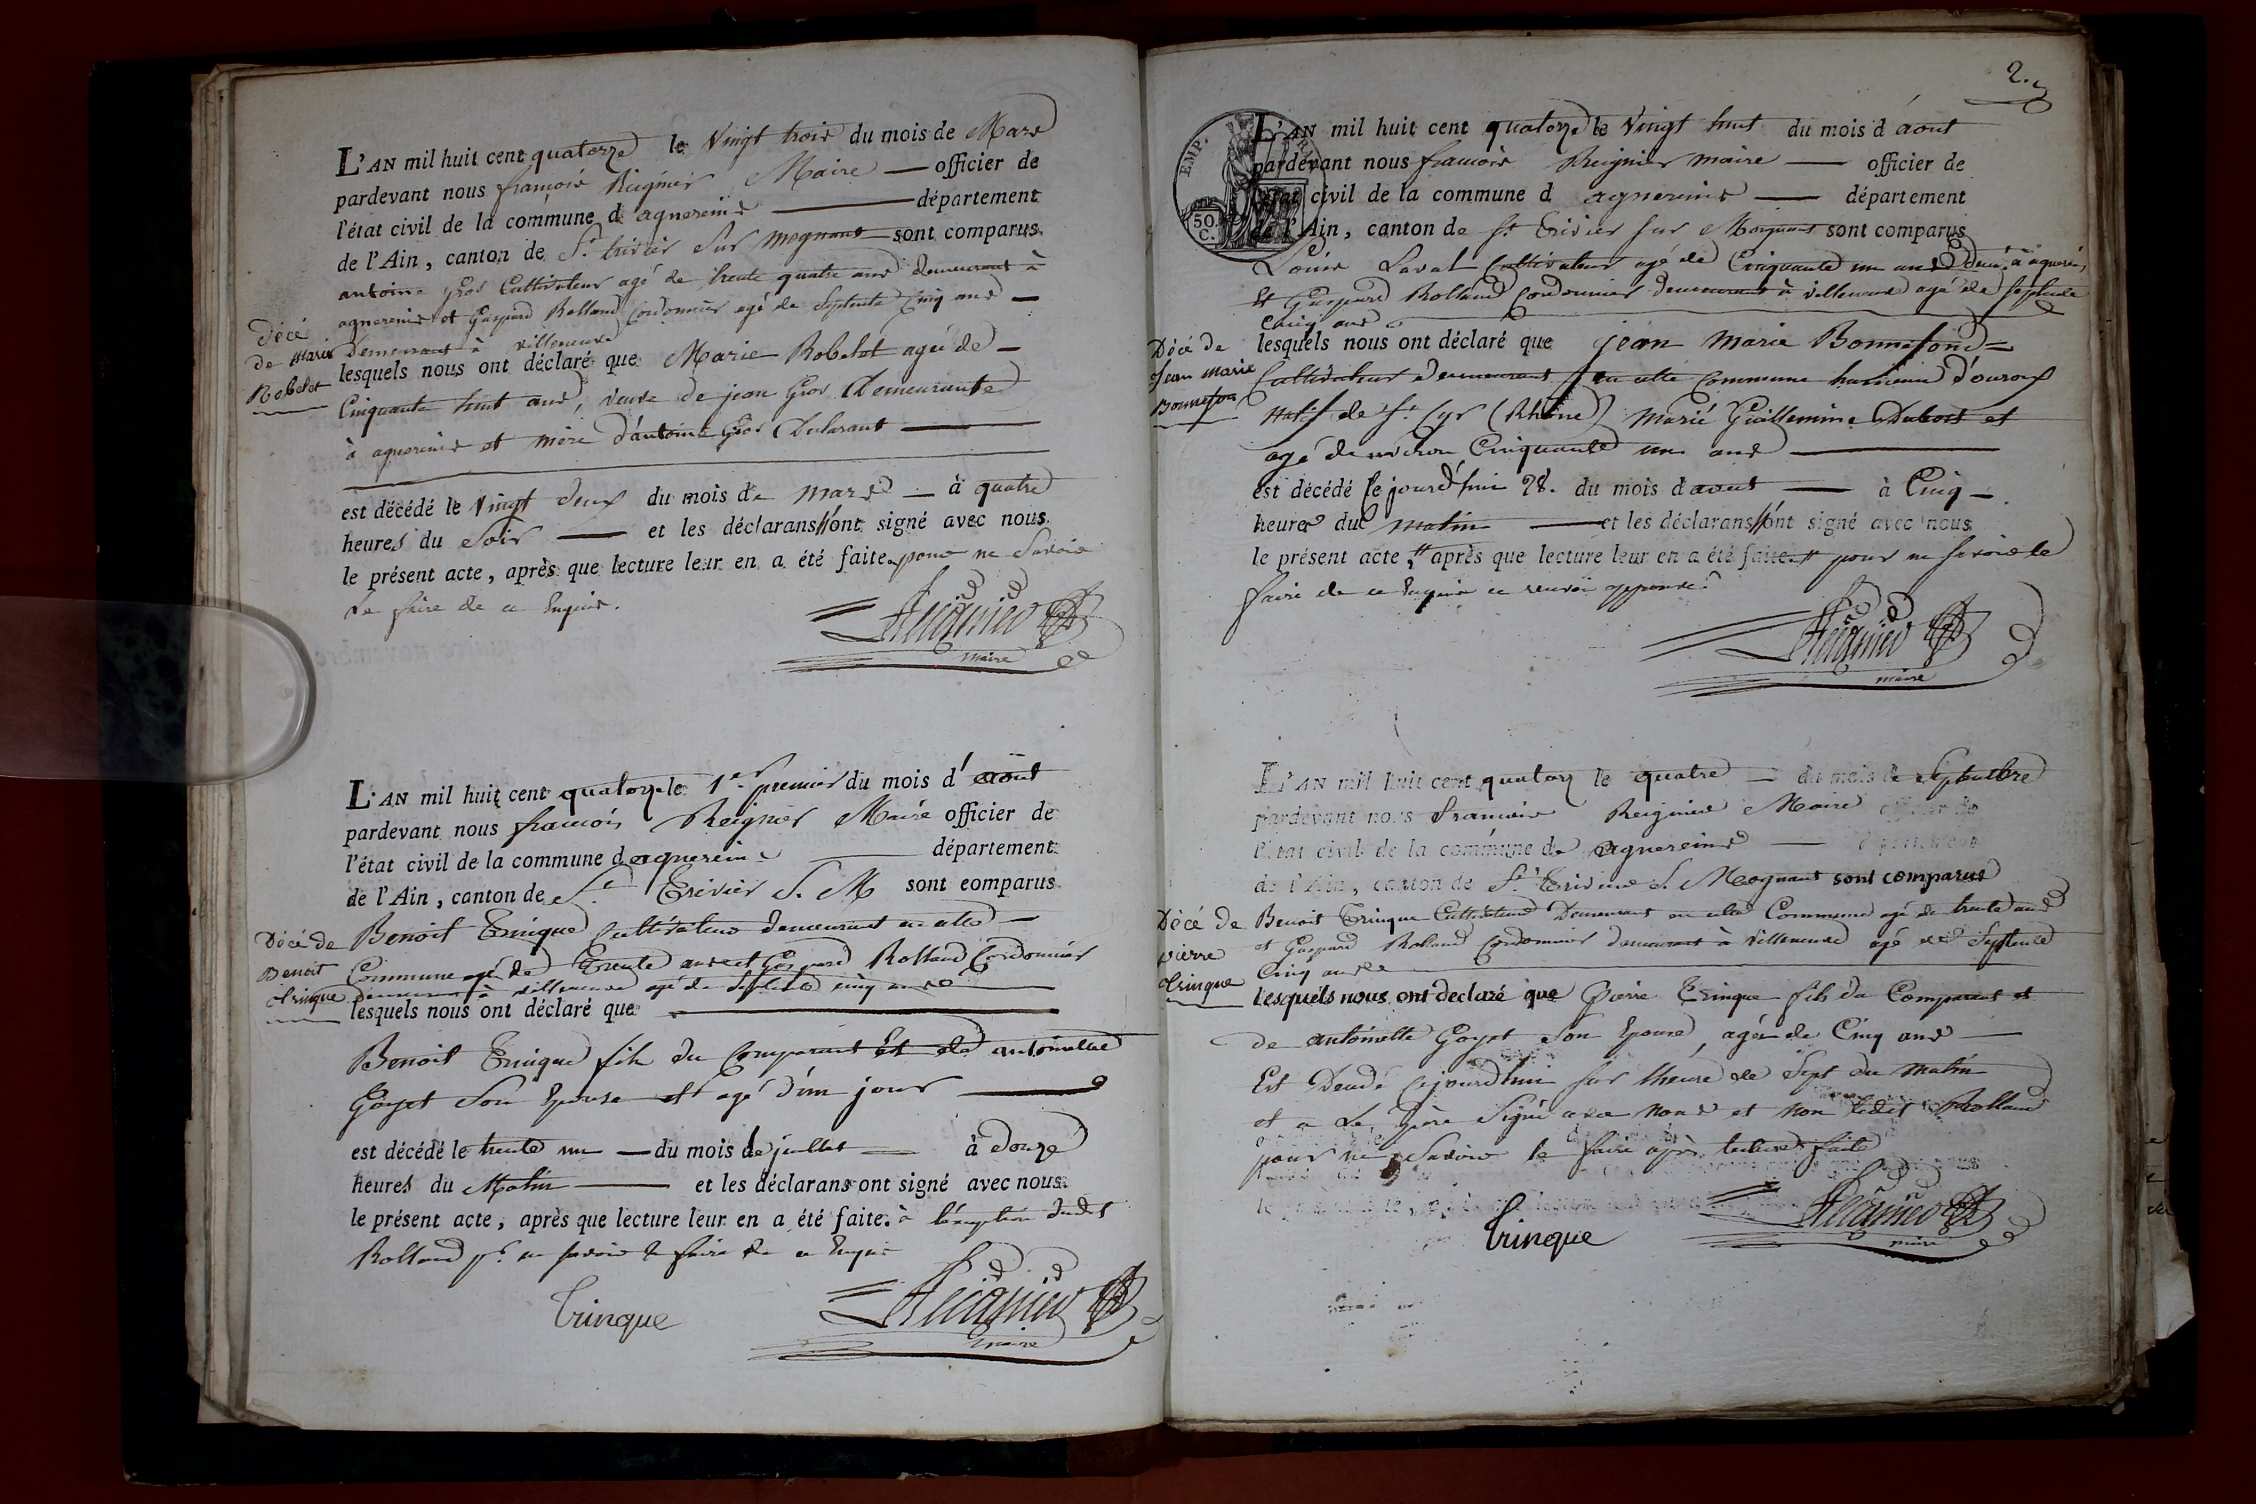 L'AN mil huit cent quatorze le Vingt trois du mois de Mars
pardevant nous françois Reignier Maire — officier de
l'état civil de la commune d agnereins — département
de l'Ain, canton de St. trivier Sur mognans sont comparus
antoine Gros Cultivateur agé de trente quatre ans demeurant à
agnereins et Gaspard Rolland Cordonnier agé de Septente Cinq ans —
Demeurant à villeneuve
Décé
de Marie
Robelet
lesquels nous ont déclaré que Marie Robelet agée de —
Cinquante huit ans, veuve de jean Gros Demeurante
à agnereins et mère d'antoine Gros Déclarant —
est décédé le Vingt deux du mois de mars — à quatre
heures du Soir — et les déclarans // ont signé avec nous
le présent acte, après que lecture leur en a été faite. pour ne Savoir
Le faire de ce Enquis.
Reignier
maire
L'AN mil huit cent quatorze le 1er. premier du mois d'août
pardevant nous françois Reignier Maire officier de
l'état civil de la commune d agnereins — département
de l'Ain, canton de St. Trivier S. M sont comparus
Benoit Trinque Cultivateur demeurant en cette —
Commune agé de Trente ans et Gaspard Rolland Cordonnier
Demeurant à villeneuve agé de Septente cinq ans
Décé de
Benoit
Trinque
lesquels nous ont déclaré que —
Benoit Trinque fils du Comparant Et de antoinette
Goyet Son Epouse et agé d'un jour —
est décédé le trente un — du mois de juillet — à Douze
heures du Matin — et les déclarans ont signé avec nous
le présent acte, après que lecture leur en a été faite. à l'éxception dudit
Rolland pr. ne savoir le faire de ce Enquis
Trinque
Reignier
maire
2.
EMP.
50
C.
L'AN mil huit cent quatorze le Vingt huit du mois d'aout
pardevant nous françois Reignier maire — officier de
l'état civil de la commune d agnereins — département
de l'Ain, canton de St. Trivier sur Mognans sont comparus
Louis Laval Cultivateur agé de Cinquante un ans Deu. à agnereins
Et Gaspard Rolland Cordonnier demeurant à villeneuve agé de septente
Cinq ans
Décé de
Jean Marie
Bonnefon
lesquels nous ont déclaré que jean Marie Bonnefond =
Cultivateur demeurant en cette Commune hameau d'ouroux
Natif de St. Cyr (Rhône) Marié Guillemine Dubost et
agé denviron Cinquante un ans —
est décédé le jourd'hui 28. du mois d aout — à Cinq —
heures du matin — et les déclarans // ont signé avec nous
le présent acte, après que lecture leur en a été faite. // pour ne savoir le
faire de ce Enquis ce renvoi approuvé
Reignier
maire
L'AN mil huit cent quatorz le quatre — du mois de Septembre
pardevant nous François Reignier Maire officier de
l'état civil de la commune de agnereins — département
de l'Ain, canton de St. Trivier S. Mognans sont comparus
Benoit Trinque Cultivateur Demeurant en cette Commune agé de trente ans
et Gaspard Rolland Cordonnier demeurant à villeneuve agé de Septente
Cinq ans
Décé de
pierre
Trinque
lesquels nous ont declaré que Pierre Trinque fils du Comparant et
de antoinette Goyet Son Epouse, agée de Cinq ans —
Est Décédé cejourdhui sur lheure de Sept du matin
et a Le père Signé avec Nous et Non Ledit Rolland
pour ne Savoir le faire après lecture faite
Trinque
Reignier
maire